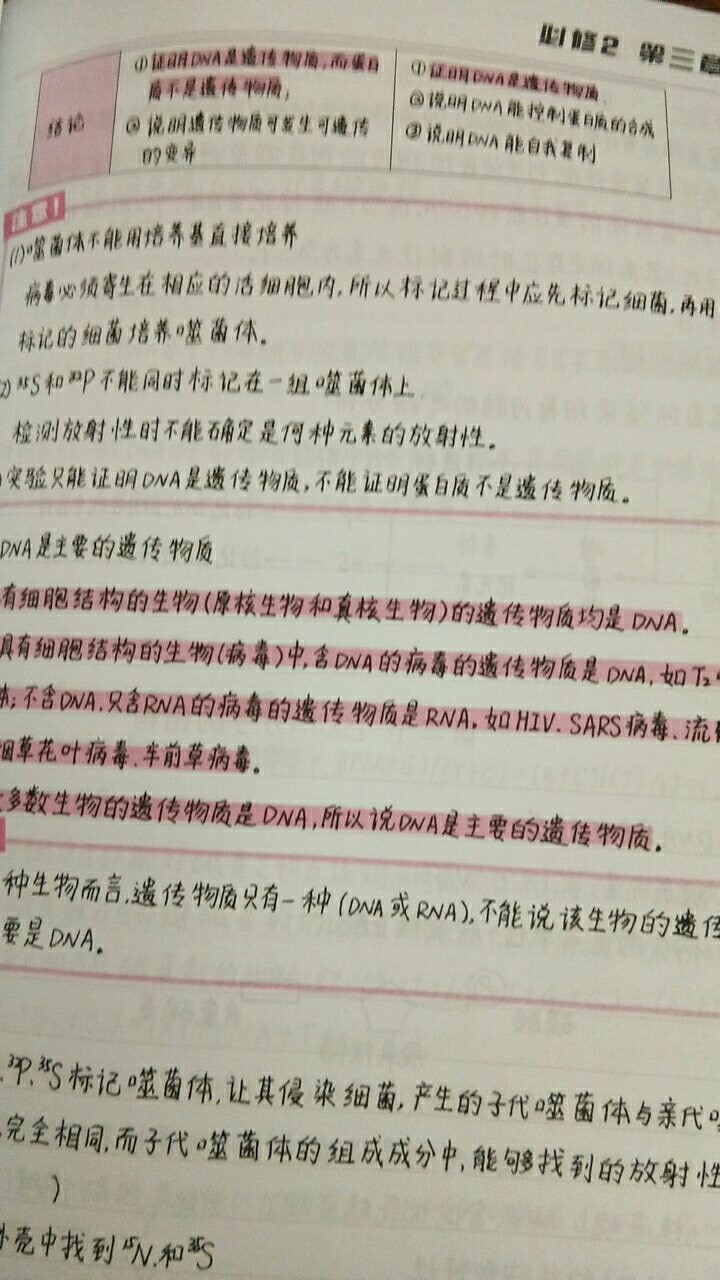 必修2 第三章
结论
①证明DNA是遗传物质,而蛋白
质不是遗传物质;
②说明遗传物质可发生可遗传
的变异
①证明DNA是遗传物质
②说明DNA能控制蛋白质的合成
③说明DNA能自我复制
注意1
(1)噬菌体不能用培养基直接培养
病毒必须寄生在相应的活细胞内,所以标记过程中应先标记细菌,再用
标记的细菌培养噬菌体。
2) ³⁵S和³²P不能同时标记在一组噬菌体上.
检测放射性时不能确定是何种元素的放射性。
)实验只能证明DNA是遗传物质,不能证明蛋白质不是遗传物质。
DNA是主要的遗传物质
有细胞结构的生物(原核生物和真核生物)的遗传物质均是DNA。
具有细胞结构的生物(病毒)中,含DNA的病毒的遗传物质是DNA,如T₂
体;不含DNA,只含RNA的病毒的遗传物质是RNA,如HIV、SARS病毒、流
烟草花叶病毒、车前草病毒。
多数生物的遗传物质是DNA,所以说DNA是主要的遗传物质。
种生物而言,遗传物质只有一种(DNA或RNA),不能说该生物的遗传
要是DNA。
、³²P、³⁵S标记噬菌体,让其侵染细菌,产生的子代噬菌体与亲代
完全相同,而子代噬菌体的组成成分中,能够找到的放射性
)
外壳中找到¹⁵N和³⁵S